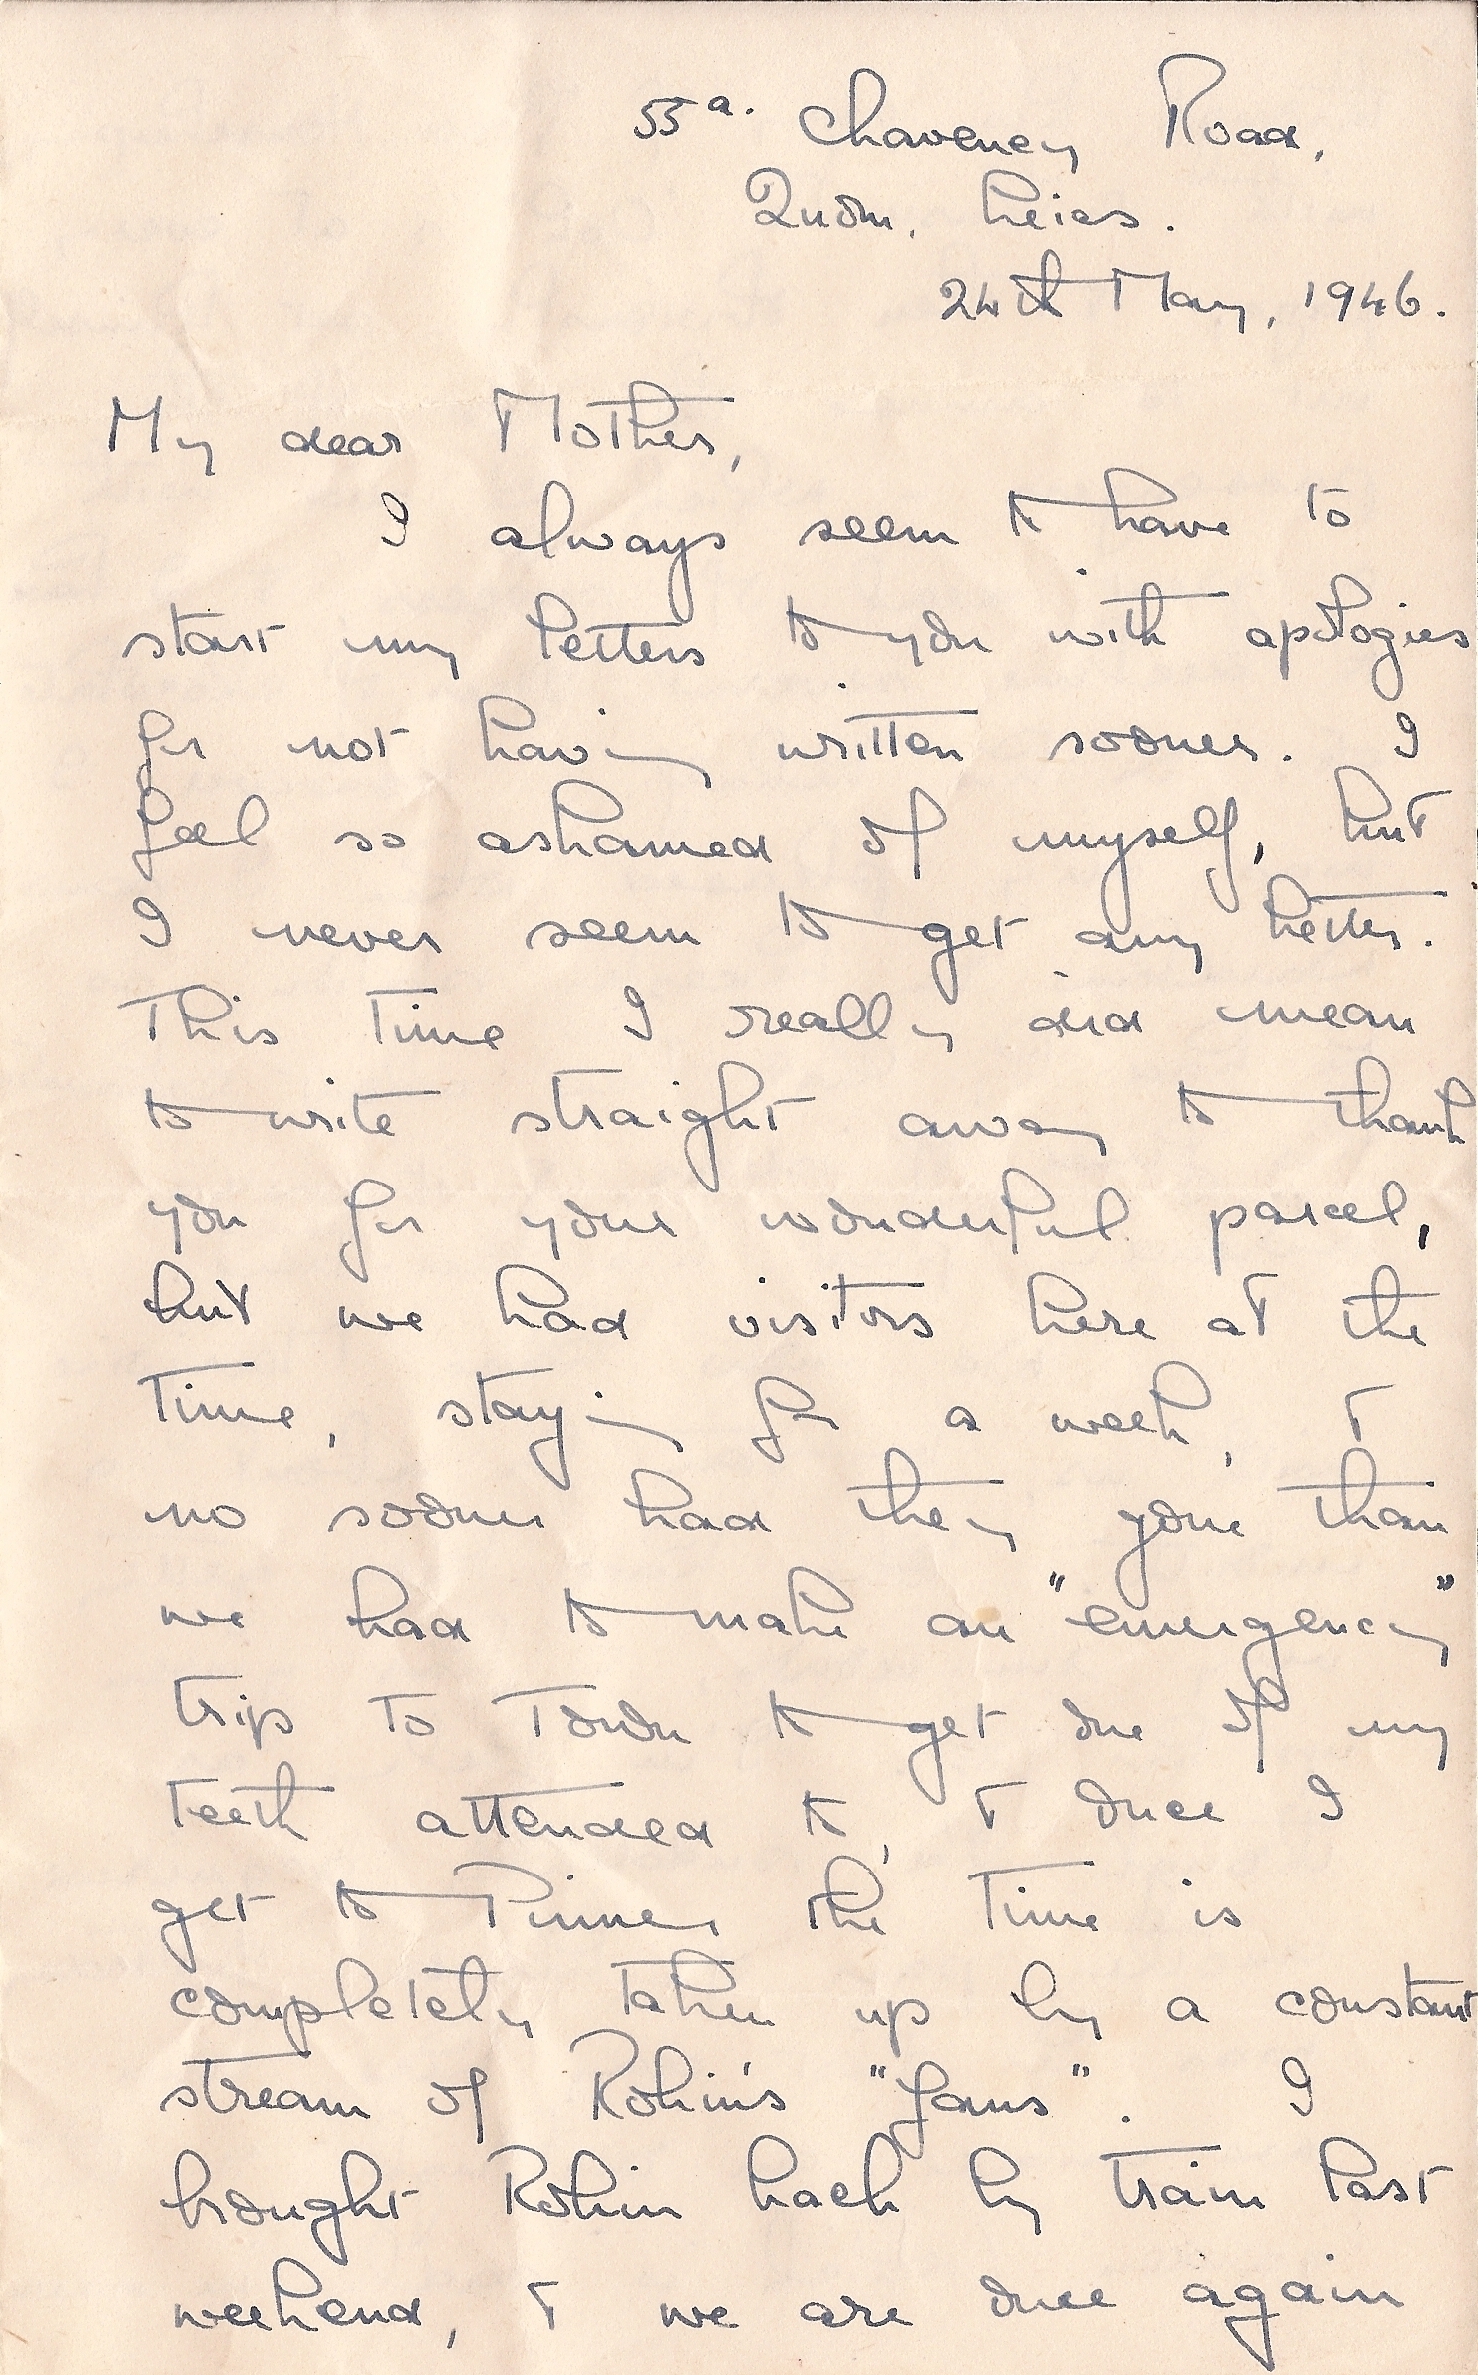 55a. Chaveney Road,
Quorn, Leics.
24th May, 1946.
My dear Mother,
I always seem to have to
start my letters to you with apologies
for not having written sooner. I
feel so ashamed of myself, but
I never seem to get any better.
This time I really did mean
to write straight away to thank
you for your wonderful parcel,
but we had visitors here at the
time, staying for a week, &
no sooner had they gone than
we had to make an "emergency"
trip to Town to get one of my
teeth attended to, & once I
get to Pinner the time is
completely taken up by a constant
stream of Robin's "fans". I
brought Robin back by train last
weekend, & we are once again